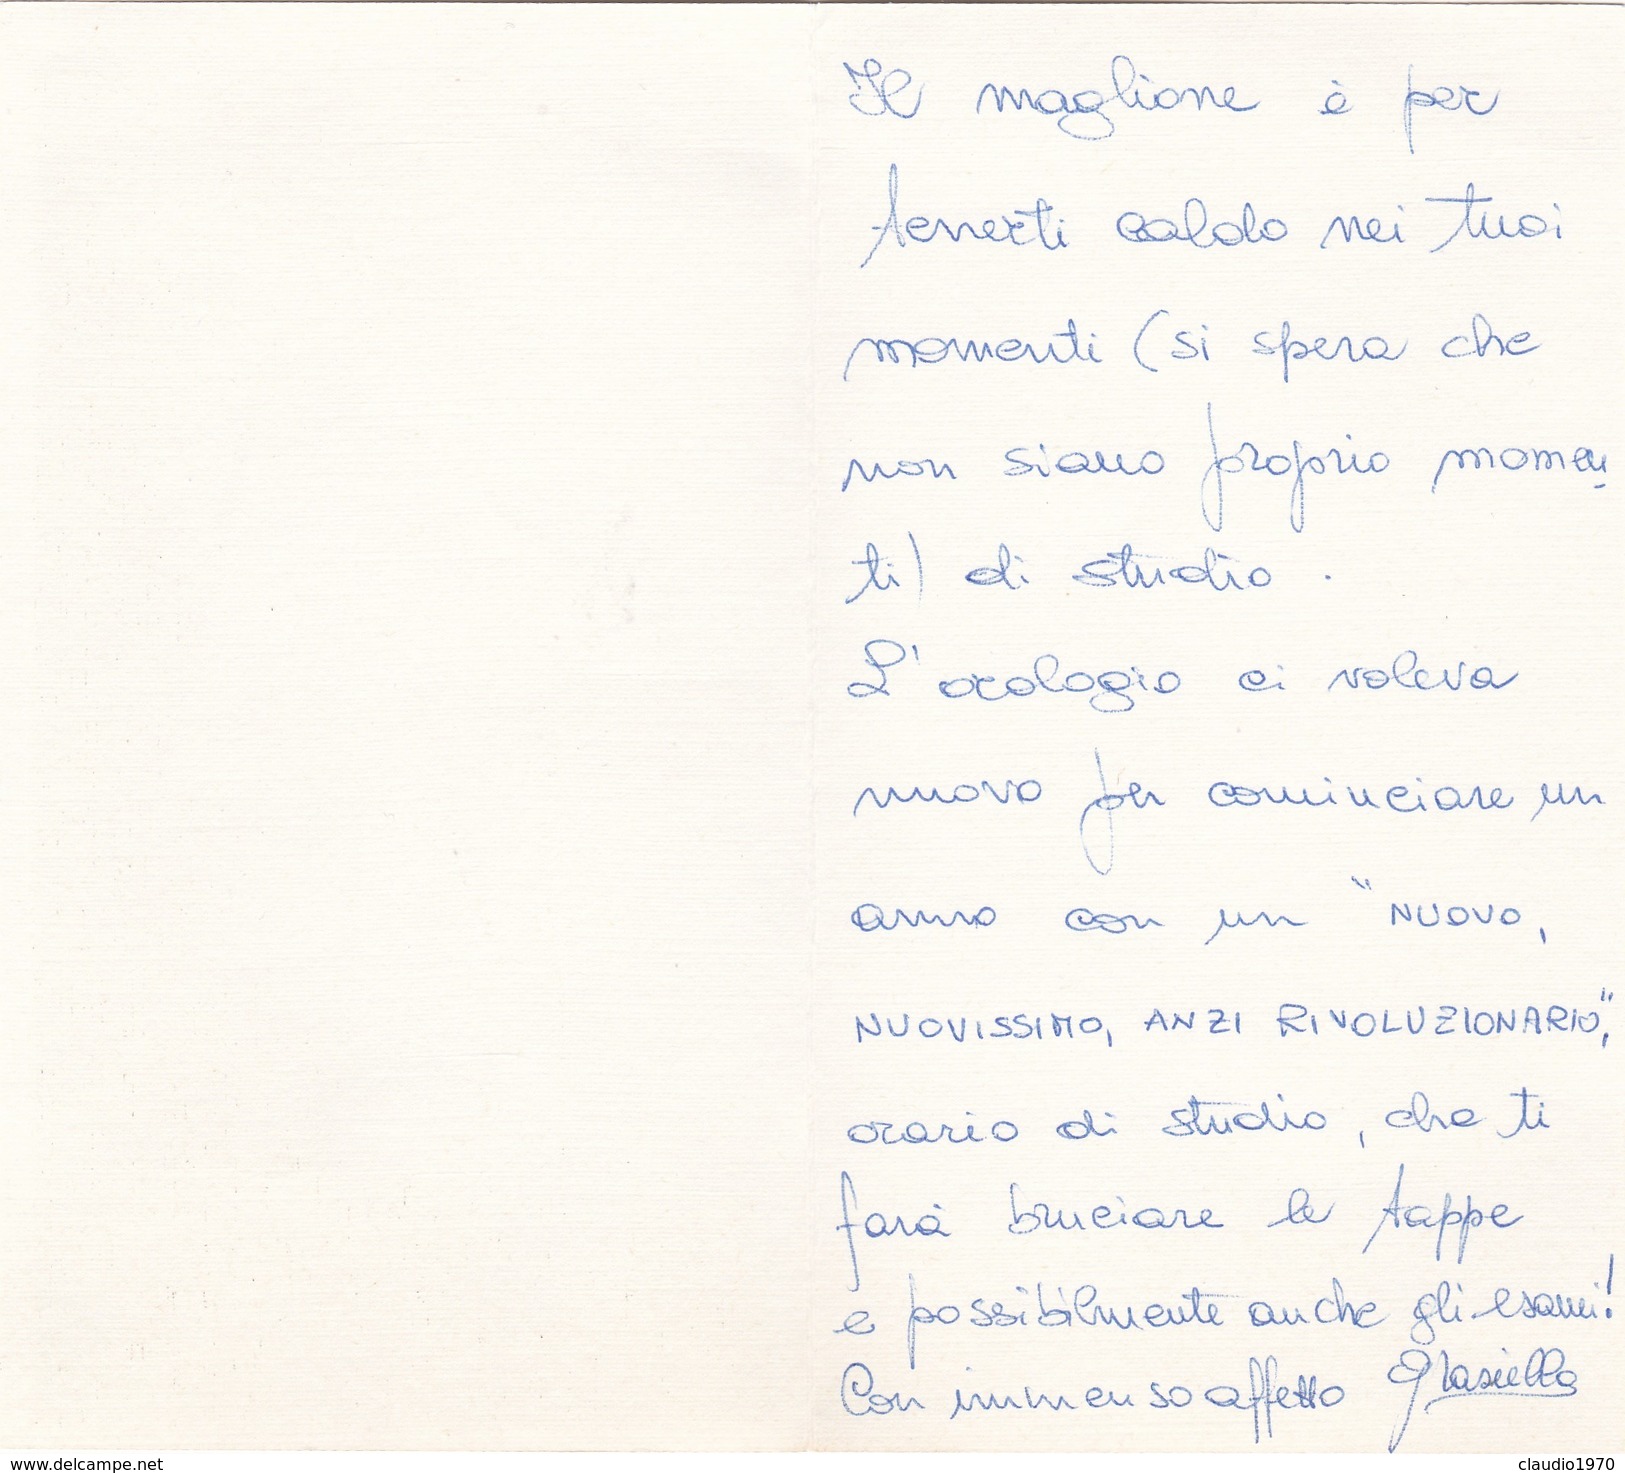 Il maglione è per
tenerti caldo nei tuoi
momenti (si spera che
non siano proprio momen
ti) di studio.
L'orologio ci voleva
nuovo per cominciare un
anno con un "NUOVO,
NUOVISSIMO, ANZI RIVOLUZIONARIO",
orario di studio, che ti
farà bruciare le tappe
e possibilmente anche gli esami!
Con immenso affetto Grasiella
www.delcampe.net
claudio1970